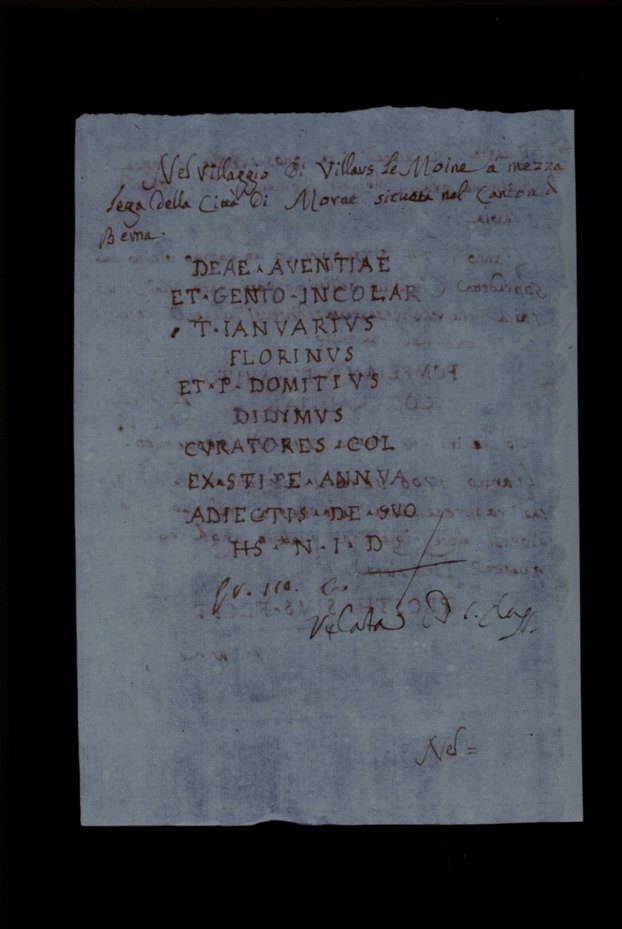 Nel Villaggio di Villars le Moine a mezza
lega della Città di Morat situata nel Canton di
Berna.
DEAE · AVENTIAE
ET · GENIO - INCOLAR
T · IANVARIVS
FLORINVS
ET · P · DOMITIVS
DIDYMVS
CVRATORES · COL
EX · STIPE · ANNVA
ADIECTIS · DE · SVO
HS · N · I · D
Nel =